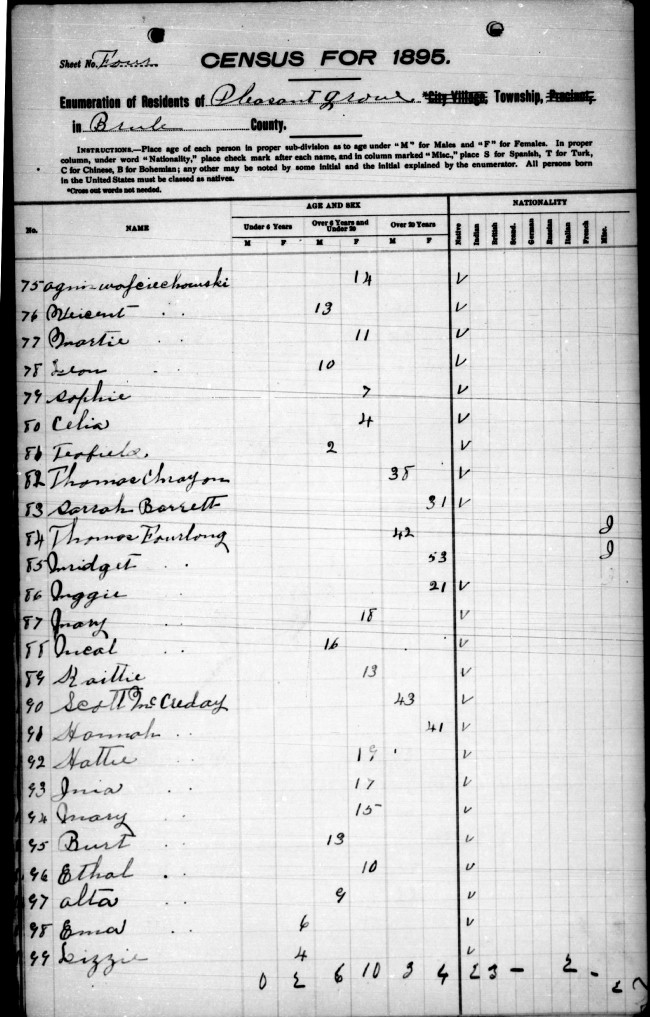 Sheet No. Four
CENSUS FOR 1895.
Enumeration of Residents of Pleasant grove *City Village, Township, Precinct,
in Brule County.
INSTRUCTIONS.—Place age of each person in proper sub-division as to age under "M" for Males and "F" for Females. In proper
column, under word "Nationality," place check mark after each name, and in column marked "Misc.," place S for Spanish, T for Turk,
C for Chinese, B for Bohemian; any other may be noted by some initial and the initial explained by the enumerator. All persons born
in the United States must be classed as natives.
*Cross out words not needed.
No. NAME AGE AND SEX NATIONALITY
Under 6 Years Over 6 Years and Under 20 Over 20 Years
M F M F M F Native Indian British Scand. German Russian Italian French Misc.
75 agni wojciechowski 14 V
76 13 V
77 Martie 11 V
78 Leon 10 V
79 Sophie 7 V
80 Celia 4 V
81 Teofield 2 V
82 Thomas 38 V
83 Sarrah Barrett 31 V
84 Thomas Fourlong 42 I
85 Bridget 53 I
86 Maggie 21 V
87 Mary 18 V
88 16 V
89 Kaittie 13 V
90 Scott McCreday 43 V
91 Hannah 41 V
92 Hattie 19 V
93 17 V
94 Mary 15 V
95 Burt 13 V
96 Ethal 10 V
97 alta 9 V
98 Ema 6 V
99 Lizzie 4 V
0 2 6 10 3 4 23 - 2 -